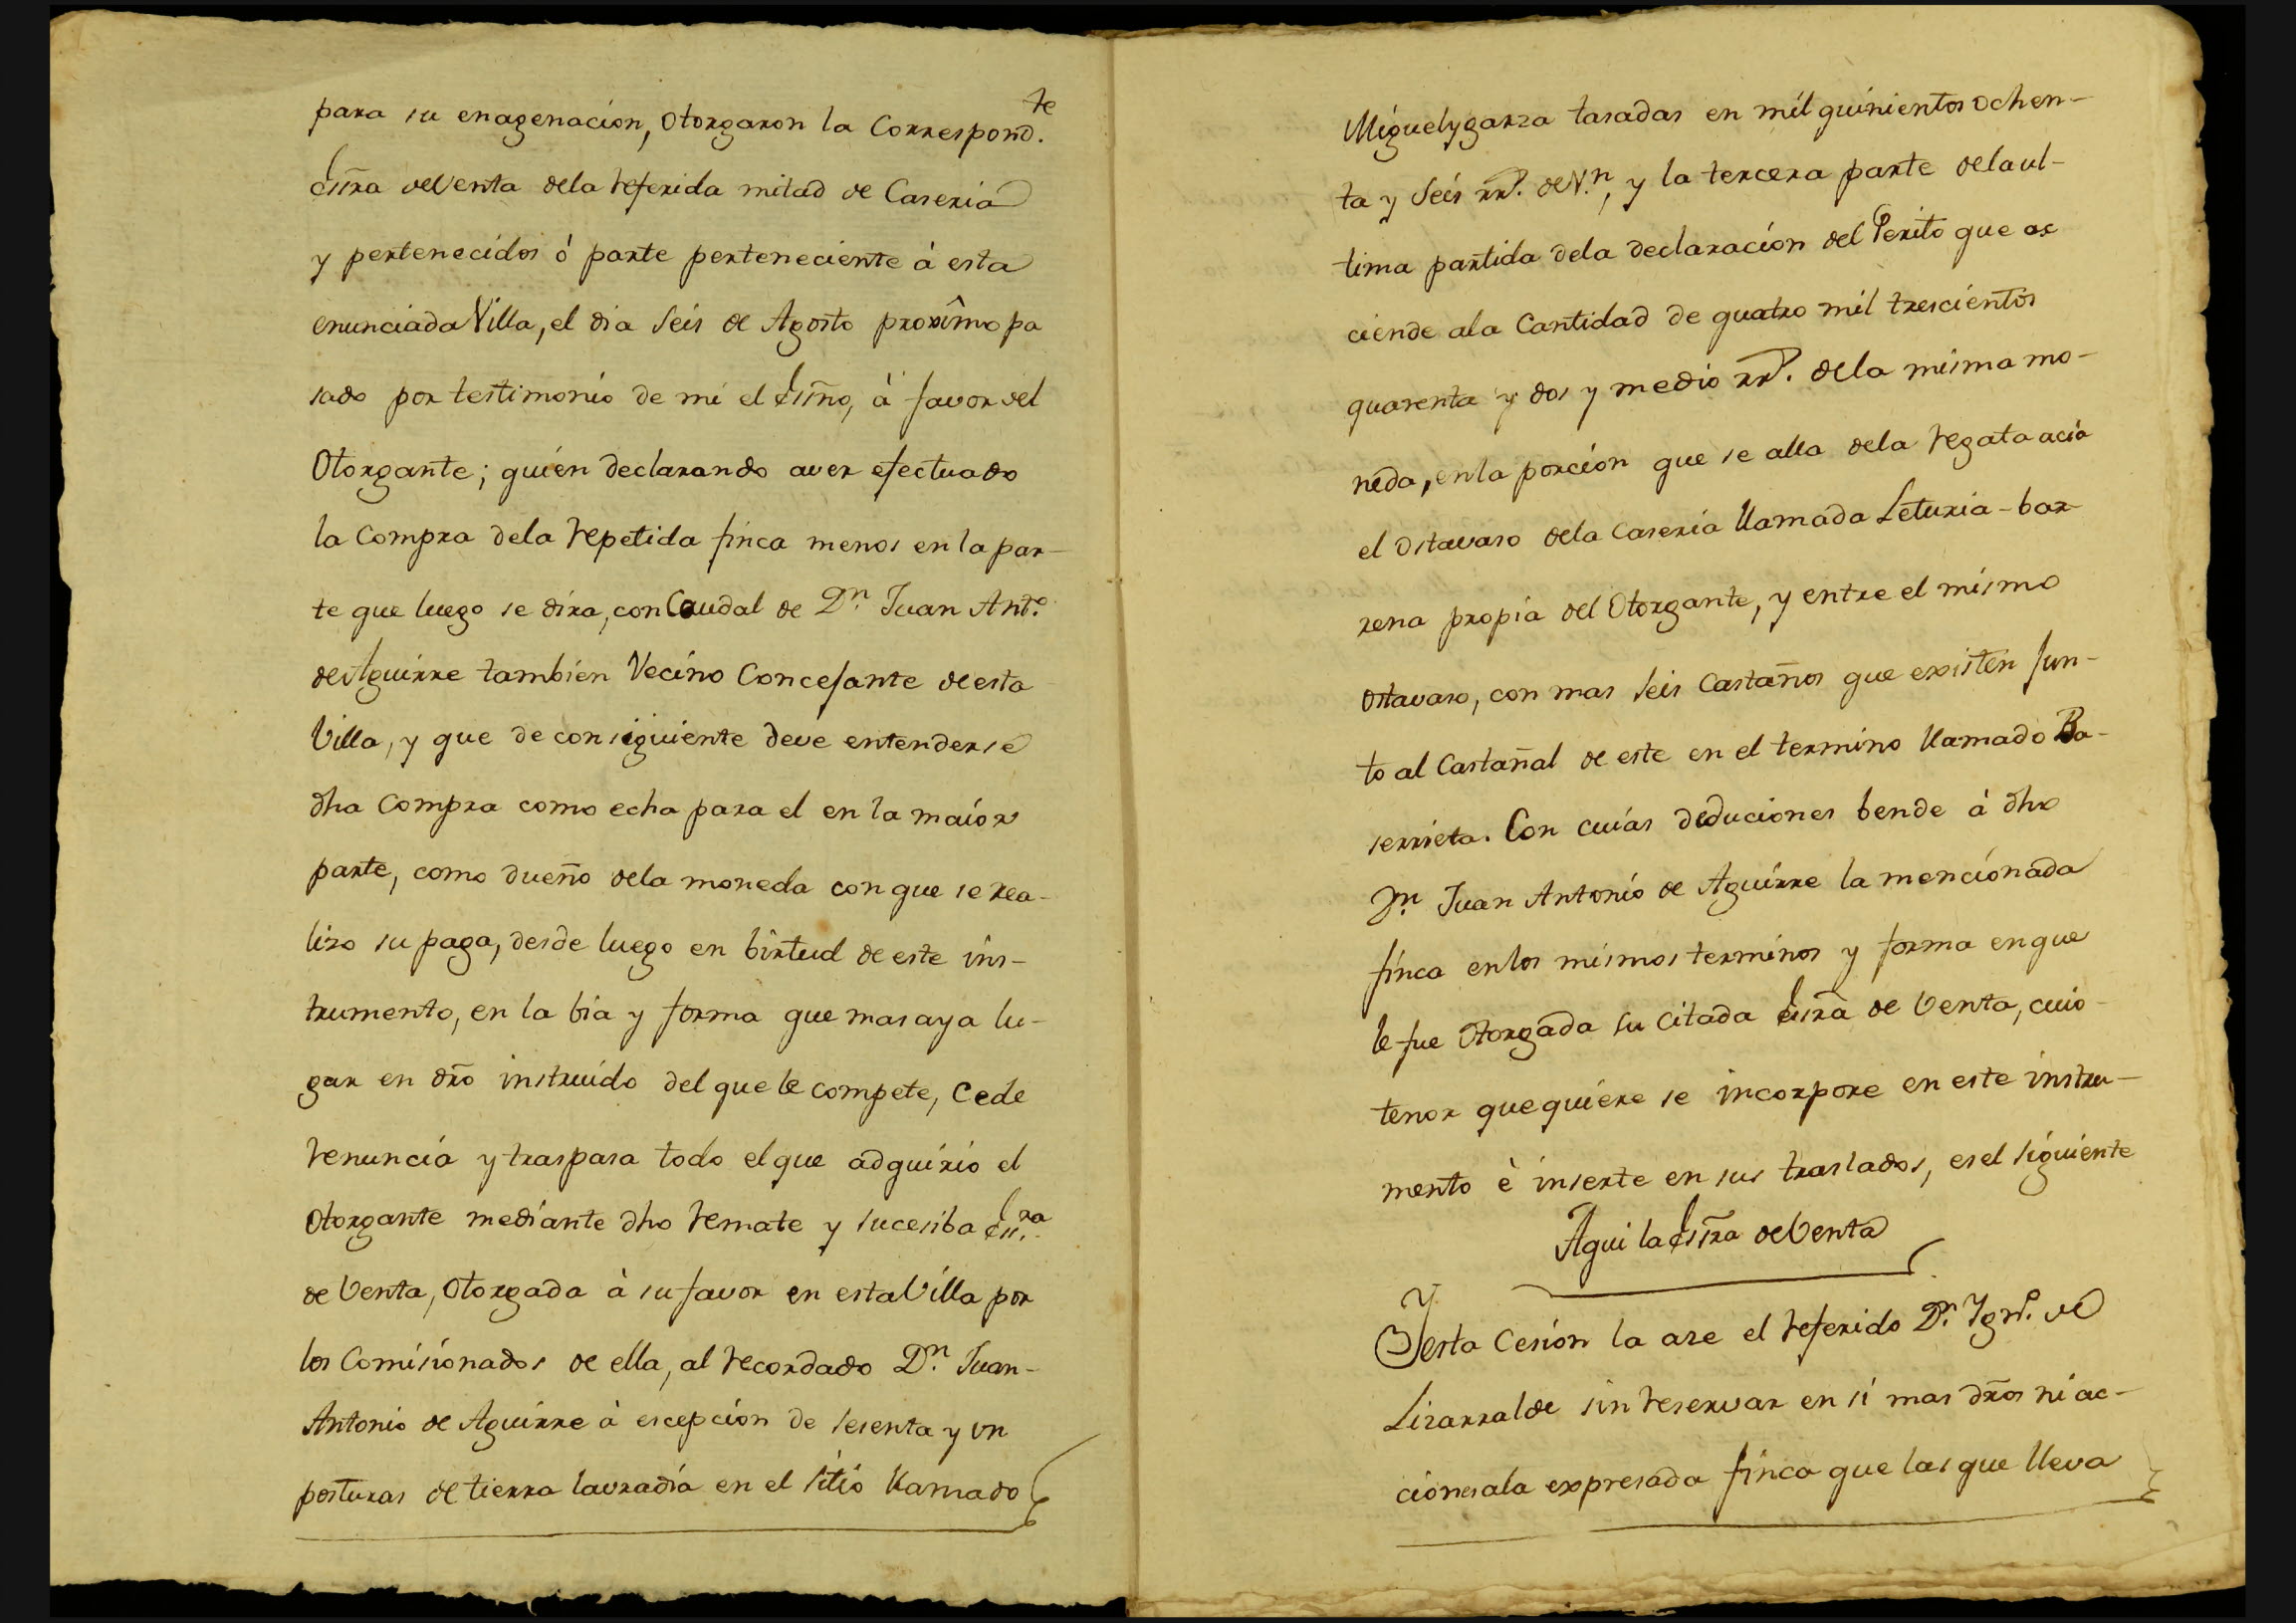 para su enagenacion, otorgaron la Correspond.te
Essra de Venta dela referida mitad de Caseria
y pertenecidos ò parte perteneciente à esta
enunciada Villa, el dia seis de Agosto proxîmo pa
sado por testimonio de mi el Essno, à favor del
Otorgante; quien declarando aver efectuado
la Compra dela repetida finca menos en la par-
te que luego se dira, con Caudal de Dn. Juan Anto.
de Aguirre tambien Vecino Concejante de esta
Villa, y que de consiguiente deve entenderse
dha Compra como echa para el en la maior
parte, como dueño dela moneda con que se rea-
lizo su paga, desde luego en birtud de este ins-
trumento, en la bia y forma que mas aya lu-
gar en dro instruido del que le compete, Cede
renuncia y traspasa todo el que adquirio el
Otorgante mediante dho remate y sucesiba Ess.ra
de Venta, Otorgada à su favor en esta Villa por
los Comisionados de ella, al recordado Dn. Juan-
Antonio de Aguirre à escepcion de sesenta y un
posturas de tierra lavradia en el sitio llamado
Miguelygarza tasadas en mil quinientos ochen-
ta y Seis rrs. de V.n, y la tercera parte dela ul-
tima partida dela declaracion del Perito que as
ciende ala Cantidad de quatro mil trescientos
quarenta y dos y medio rrs. dela misma mo-
neda, en la porcion que se alla dela regata acia
el ostavaso dela Caseria llamada Leturia-bar-
rena propia del Otorgante, y entre el mismo
ostavaso, con mas seis Castaños que existen jun-
to al Castañal de este en el termino llamado Ba-
serrieta. Con cuias deduciones bende à dho
Dn. Juan Antonio de Aguirre la mencionada
finca en los mismos terminos y forma en que
le fue Otorgada su citada Essra de Venta, cuio
tenor que quiere se incorpore en este instru-
mento è inserte en sus traslados, es el siguiente
Aqui la Essra de Venta
Y esta Cesion la aze el referido Dn. Ygno. de
Lizarralde sin reservar en si mas dros ni ac-
ciones ala expresada finca que las que lleva